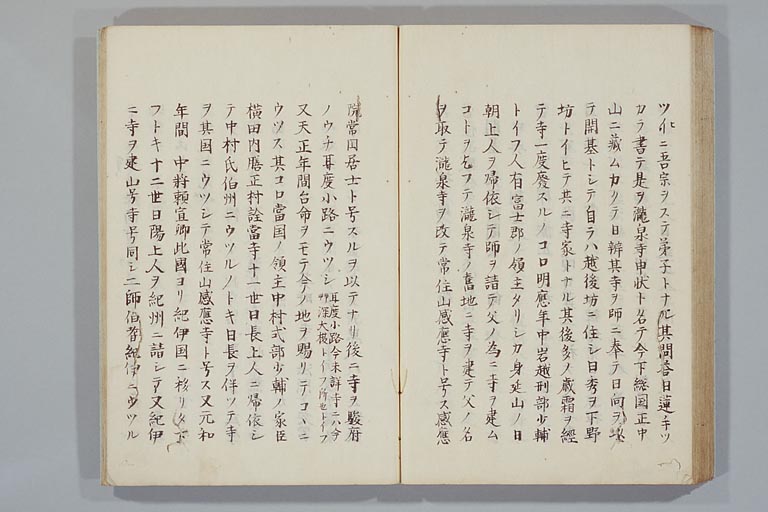 ツ井ニ吾宗ヲステ弟子トナル其問答日蓮手ツ
カラ書テ是ヲ瀧泉寺申状ト名テ今下総国正中
山ニ藏ムカクテ日辨其寺ヲ師ニ奉テ日向ヲ
テ開基トシテ自ラハ越後坊ニ住シ日秀ヲ下野
坊トイヒテ共ニ寺家トナル其後多ノ歳霜ヲ經
テ寺一度廢スルノコロ明應年中岩越刑部少輔
トイフ人有富士郡ノ領主タリシカ身延山ノ日
朝上人ヲ帰依シテ師ヲ請テ父ノ為ニ寺ヲ建ム
コトヲ乞フテ瀧泉寺ノ舊地ニ寺ヲ建テ父ノ名
ヲ取テ瀧泉寺ヲ改テ常住山感應寺ト号ス感應
院常園居士ト号スルヲ以テナリ後ニ寺ヲ駿府
ノウチ耳度小路ニウツシ 耳度小路今未詳寺ニハ今
深大根トイフ所也トイフ
又天正年間台命ヲモテ今ノ地ヲ賜リテコヽニ
ウツス其コロ當国ノ領主中村式部少輔ノ家臣
横田内膳正村詮當寺十一世日長上人ニ帰依シ
テ中村氏伯州ニウツルノトキ日長ヲ伴ツテ寺
ヲ其国ニウツシテ常住山感應寺ト号ス又元和
年間 中将頼宣卿此國ヨリ紀伊国ニ移リタマ
フトキ十二世日陽上人ヲ紀州ニ請シテ又紀伊
ニ寺ヲ建山号寺号同シ二師伯耆紀伊ニウツル